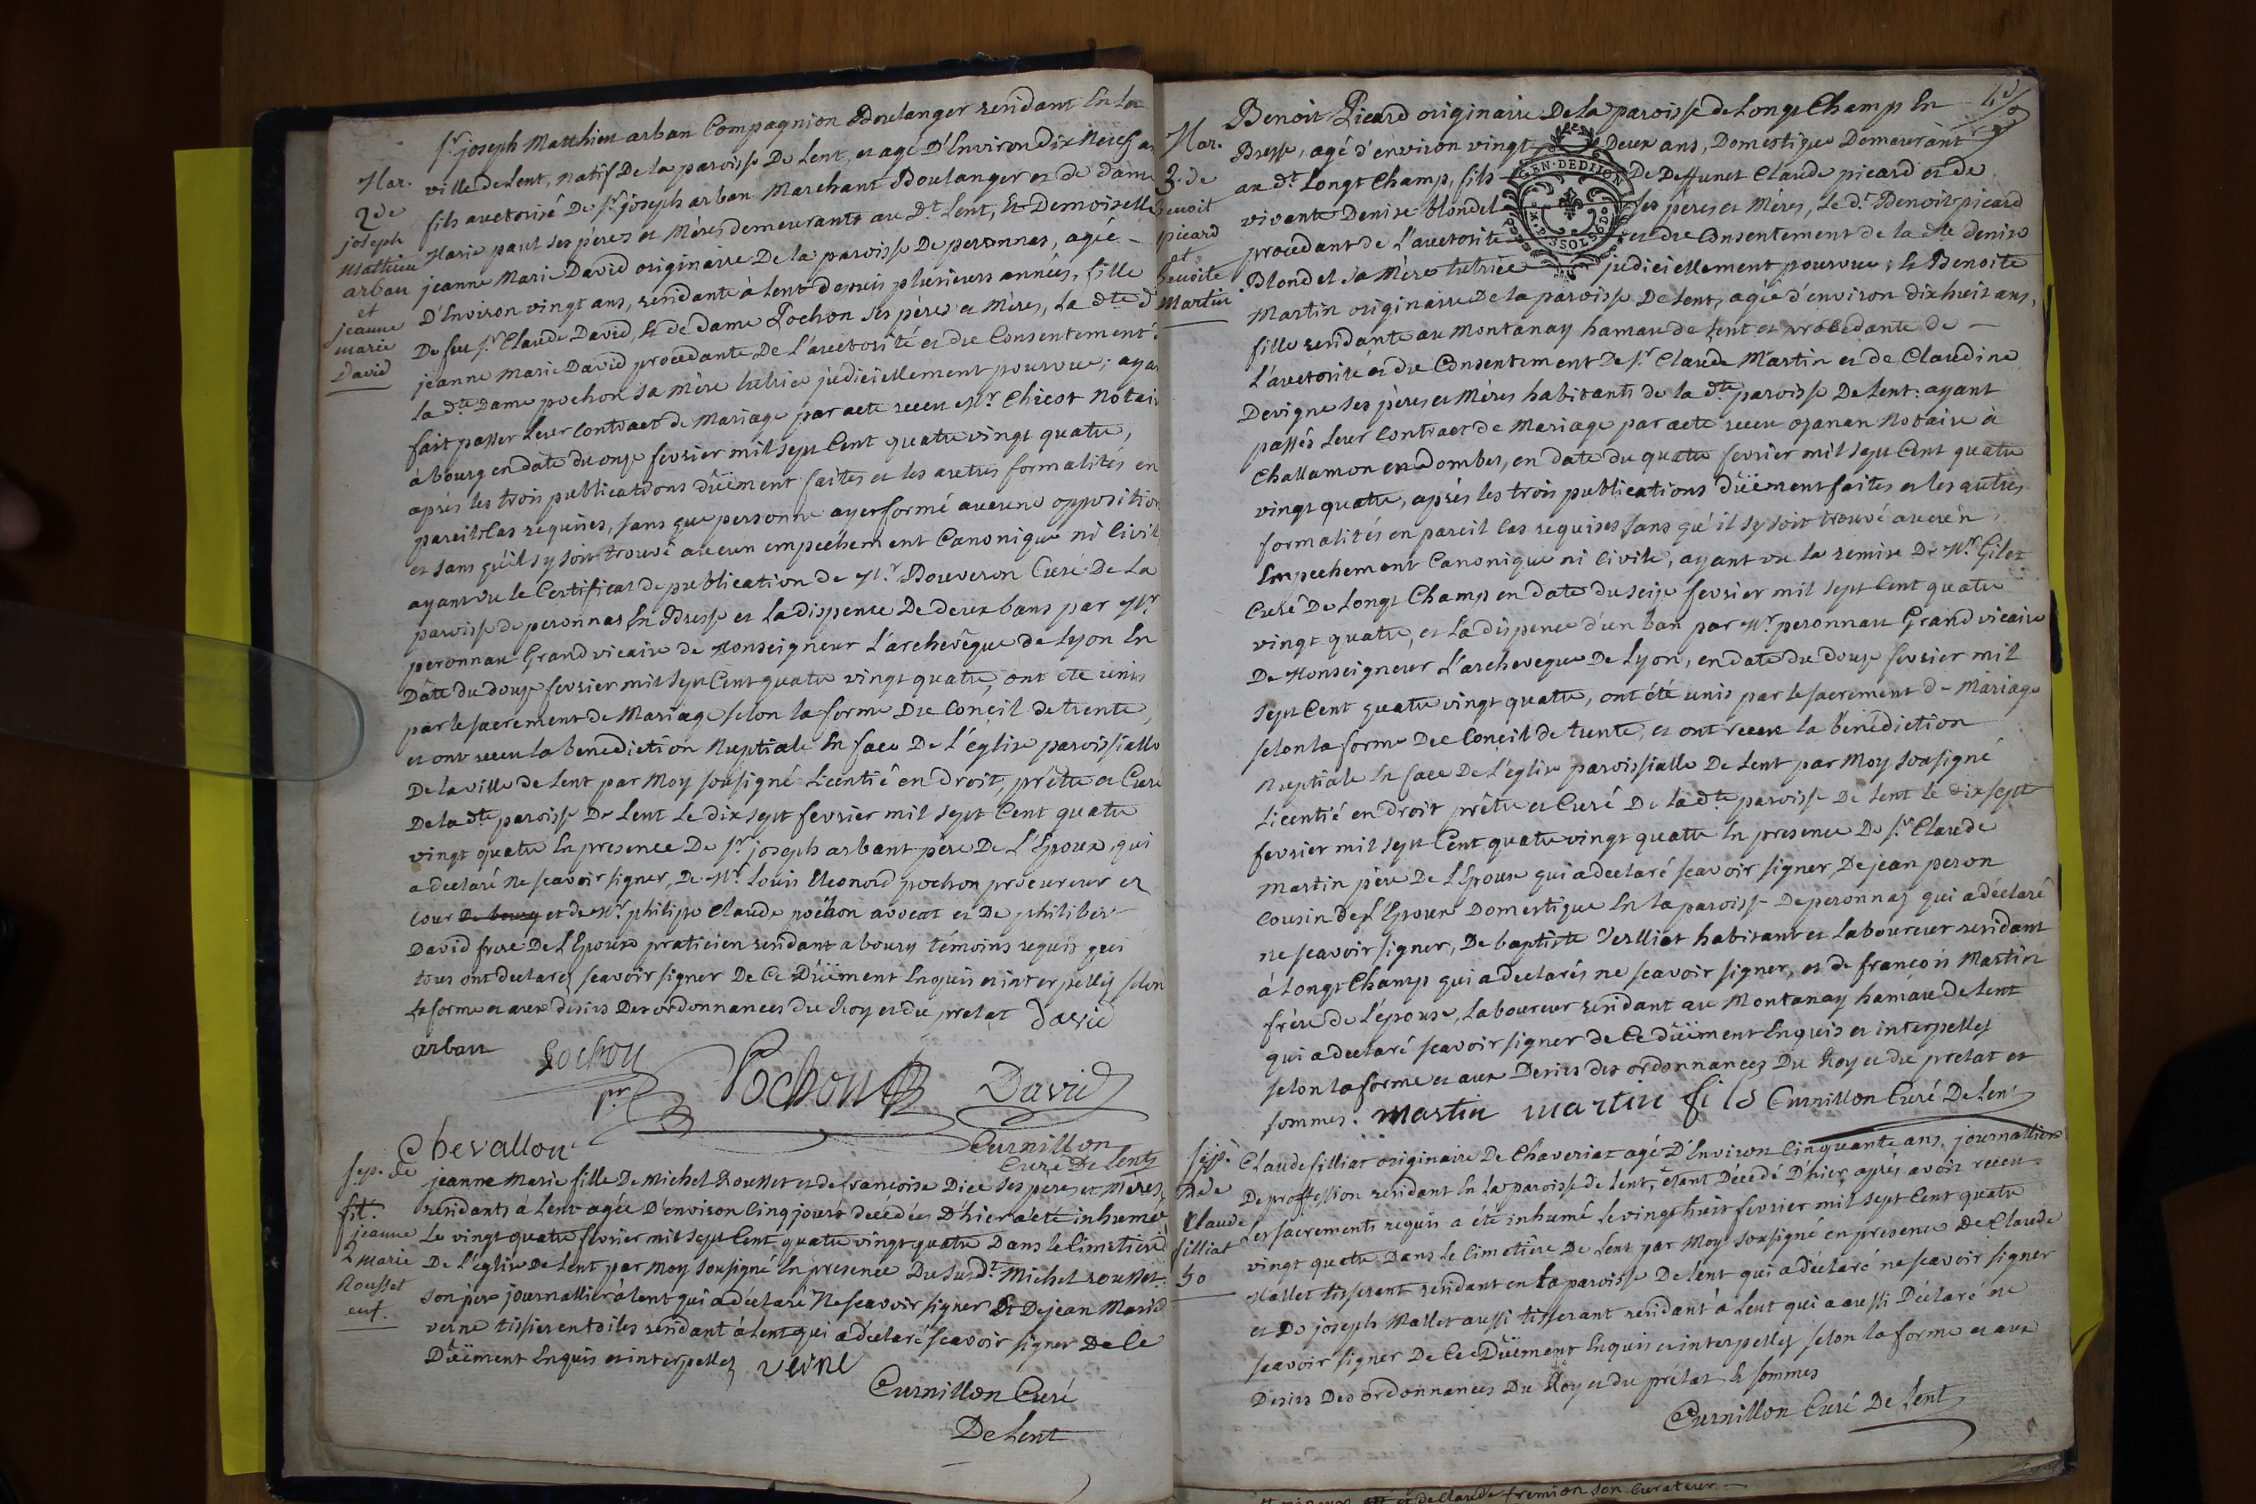 Mar.
2de
joseph
Mathieu
arban
et
jeanne
marie
David
Sr. joseph Matthieu arban Compagnion Boulanger residant En La
ville de Lent, natif De la paroisse De Lent, et agé D'Environ dix neuf an
fils auctorisé De Sr. joseph arban Marchant Boulanger et de dame
Marie paul ses pères et Mères demeurants au Dt. Lent, Et Demoiselle
jeanne Marie David originaire De la paroisse De peronnas, agée
D'Environ vingt ans, residante à Lent depuis plusieurs années, fille
De feu Sr. Claude David, Et de dame Pochon ses pères et Mères, La dte d
jeanne Marie David procedante De L'auctorité et du Consentement
la dte Dame pochon sa mère tutrice judiciellement pourvue; aya
fait passer Leur Contract de Mariage par acte receu Mr. Chicot Notair
à bourg en date du onze fevrier mil sept Cent quatre vingt quatre,
après les trois publications düement faites et les autres formalités en
pareils Cas requises, sans que personne aye formé aucune opposition
et sans qu'il s'y soit trouvé aucun empechement Canonique ni Civil
ayant vu le Certificat de publication de Mr. Bouveron Curé De La
paroisse de peronnas En Bresse et La dispence De deux bans par Mr
peronnau Grand vicaire de Monseigneur L'archevêque de Lyon En
Date du douze fevrier mil sept Cent quatre vingt quatre, ont été unis
par le sacrement de Mariage selon la forme Du Conçil de trente,
et ont receu la benediction Nuptiale En face De L'église paroissialle
De la ville de Lent par Moy sousigné Licentié en Droit, prêtre et Curé
De la dte paroisse De Lent Le dix sept fevrier mil sept Cent quatre
vingt quatre En presence De Sr. joseph arbant père De L'Epoux, qui
a declaré Ne scavoir signer, De Mr. Louis Eleonord pochon procureur et
Cour De bourg et de Mr. philipe Claude pochon avocat et De philibert
David frere De L'Epouse praticien residant a bourg témoins requis qui
tous ont declarez scavoir signer De Ce Düement Enquis et interpellez selon
la forme et aux désirs Des ordonnances du Roy et du prelat David
arban Pochon
pr Pochon David
Chevallon Curnillon
Curé De Lent
sep. de
fil.
jeanne
2 marie
Rousset
enf.
jeanne Marie fille De Michel Rousset et de francoise Dice ses pères et Meres
residants à Lent agée D'environ Cinq jours decédée D'hier a été inhumée
Le vingt quatre fevrier mil sept Cent quatre vingt quatre Dans le Cimetière
De L'église De Lent par Moy sousigné En presence Du susdt Michel rousset
son père journallier à Lent qui a declaré Ne scavoir signer Et De jean Marie
verne tissier en toiles residant à Lent qui a declaré scavoir signer De Ce
Düement Enquis et interpellez verne
Curnillon Curé
De Lent
Mar.
3. de
benoit
picard
et
benoite
Martin
Benoit Picard originaire De la paroisse de Longt Champ En
Bresse, agé d'environ vingt Deux ans, Domestique Demeurant
au dt. Longt Champ, fils De Deffunct Claude picard et de
vivante Denise blondel ses pères et Mères, Le dt. Benoit picard
procedant de L'auctorité et du Consentement de la dte denise
Blondel sa Mère tutrice judiciellement pourvue; Et Benoite
GEN. DE DIJON
Martin originaire De la paroisse De Lent, agée d'environ dix huit ans,
fille residante au Montanay hamau de Lent et procedante de
L'auctorité et du Consentement De Sr. Claude Martin et de Claudine
Devigne ses pères et Mères habitants de la dte paroisse De Lent: ayant
passés Leur Contract de Mariage par acte receu ozanan Notaire à
Challamon en dombes, en date du quatre fevrier mil sept Cent quatre
vingt quatre, après les trois publications düement faites et les autres
formalités en pareil Cas requises, sans qu'il s'y soit trouvé aucun
Empechement Canonique ni Civile, ayant vu la remise De Mr. Gilet
Curé De Longt Champ en date du seize fevrier mil sept Cent quatre
vingt quatre, et La dispence d'un ban par Mr. peronnau Grand vicaire
De Monseigneur L'archeveque De Lyon, en date du douze fevrier mil
sept Cent quatre vingt quatre, ont été unis par le sacrement de Mariage
selon la forme Du Conçil de trente, et ont receu la bénédiction
Nuptiale En face De L'église paroissialle De Lent par Moy sousigné
Licentié en droit prêtre et Curé De la dte paroisse De Lent Le dix sept
fevrier mil sept Cent quatre vingt quatre En presence De Sr. Claude
Martin père De L'Epouse qui a declaré scavoir signer, De jean peron
Cousin de L'Epoux Domestique En la paroisse De peronnaz qui a déclaré
ne scavoir signer, De baptiste Verlliat habitant et Laboureur residant
à Longt Champ qui a declarés ne scavoir signer, et de françois Martin
frère de L'épouse, Laboureur residant au Montanay hamau de Lent
qui a declaré scavoir signer de Ce düement Enquis et interpelles
selon la forme et aux Desirs des ordonnances Du Roy et du prelat et
sommes. Martin martin fils Curnillon Curé De Lent
sep.
De
Claude
filliat
50
Claude filliat originaire De Chaveriat agé D'Environ Cinquante ans, journallier
De proffession residant En la paroisse de Lent, étant Décedé D'hier, après avoir receu
Les sacrements requis a été inhumé Le vingt huit fevrier mil sept Cent quatre
vingt quatre Dans Le Cimetière De Lent par Moy sousigné en presence de Claude
Mallet tisserent residant en la paroisse De Lent qui a déclaré ne scavoir signer
et De joseph Mallet aussi tisserant residant à Lent qui a aussi Déclaré ne
scavoir signer De Ce Düement Enquis et interpellez selon la forme et aux
Desirs Des ordonnances Du Roy et du prélat Et sommes
Curnillon Curé De Lent
et de Claude fremion son Curateur